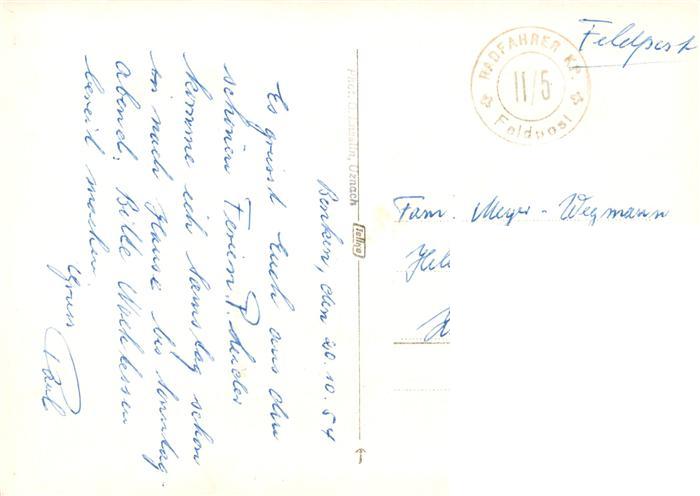 Feldpost
RADFAHRER KP.
II/5
Feldpost
Fam. Meyer-Wegmann
Benken, den 20.10.54
Es grüsst Euch aus den
schönen Ferien. P.
komme ich Samstag schon
nach Hause bis Sonntag-
abend. Bitte Nachtessen
bereit machen.
Gruss Paul
Uznach